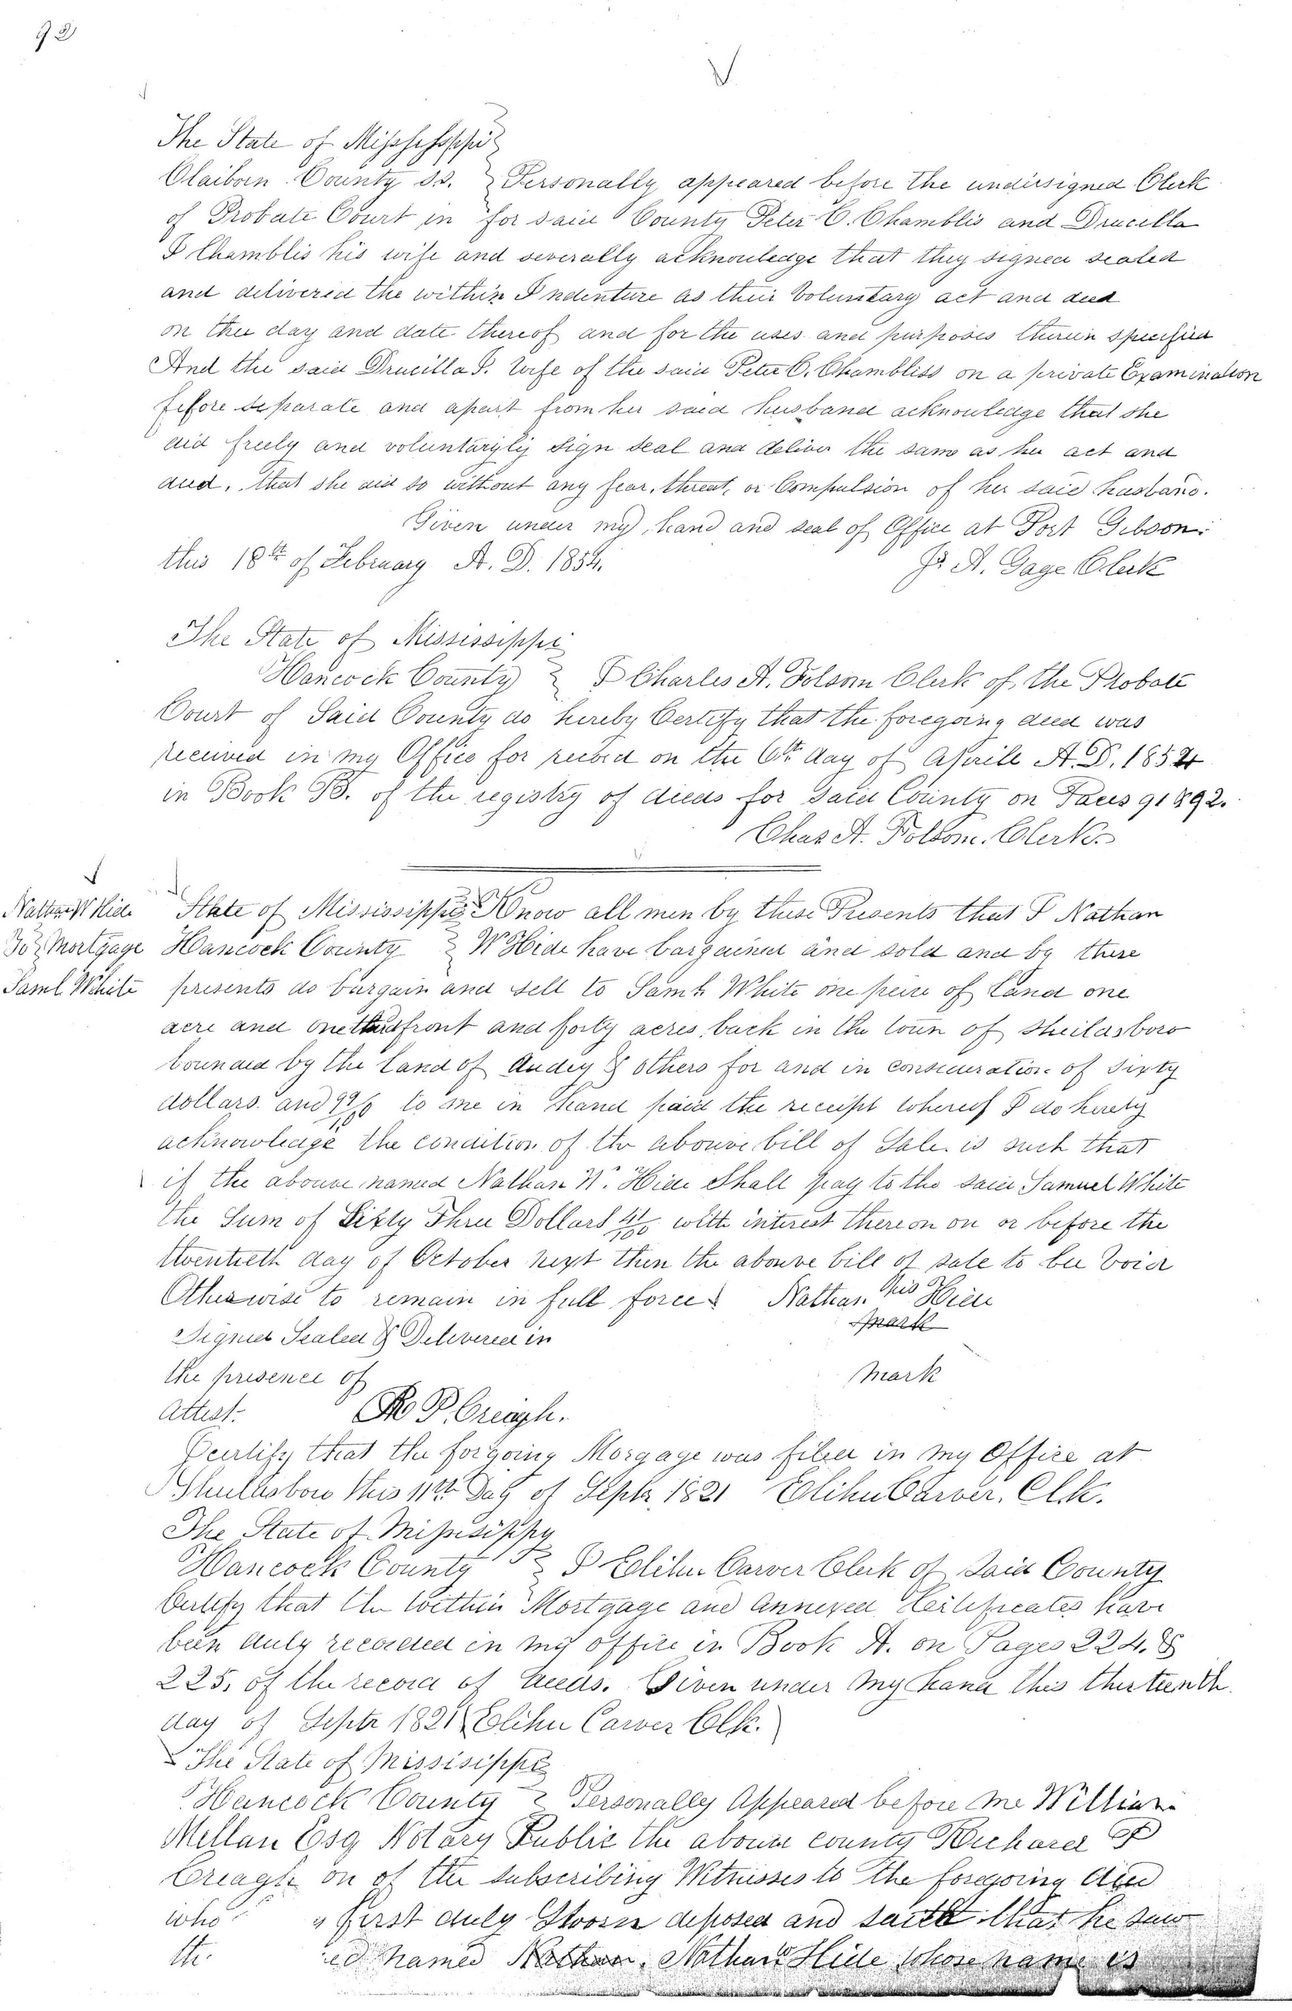 92
The State of Mississippi
Claiborn County s.s. Personally appeared before the undersigned Clerk
of Probate Court in for said County Peter C. Chamblis and Drucilla
J Chamblis his wife and severally acknowledge that they signed sealed
and delivered the within Indenture as their Voluntary act and deed
on the day and date thereof and for the uses and purposes therein specified
And the said Drucilla J. Wife of the said Peter C. Chambliss on a private Examination
before separate and apart from her said husband acknowledge that she
did freely and voluntaryly sign seal and deliver the same as her act and
deed, that she did so without any fear, threat, or Compulsion of her said husband.
Given under my hand and seal of Office at Port Gibson.
this 18th of February A. D. 1854.
Js. A. Gage Clerk
The State of Mississippi
Hancock County I Charles A. Folsom Clerk of the Probate
Court of Said County do hereby Certify that the foregoing deed was
received in my Office for record on the 6th day of Aprile A.D. 1854
in Book B. of the registry of deeds for said County on Paces 91 & 92.
Chas A. Folsom. Clerk.
Nathan W Hide
To Mortgage
Saml. White
State of Mississippi Know all men by these Presents that I Nathan
Hancock County W Hide have bargained and sold and by these
presents do bargain and sell to Saml. White one peice of land one
acre and one third front and forty acres back in the town of Sheildsboro
bounded by the land of Audey & others for and in consideration of sixty
dollars and 99/100 to me in hand paid the receipt whereof I do hereby
acknowledge the condition of the abouve bill of Sale is such that
if the abouve named Nathan W. Hide Shall pay to the said Samuel White
the Sum of Sixty Three Dollars 41/100 with interest thereon on or before the
twentieth day of October next then the abouve bill of sale to bee Void
Otherwise to remain in full force Nathan his Hide
mark
Signed Sealed & Delivered in
the presence of mark
Attest. R P. Creagh.
I certify that the forgoing Morgage was filed in my Office at
Shieldsboro this 11th Day of Septr 1821 Elihu Carver. Clk.
The State of Missisippy
Hancock County I Elihu Carver Clerk of Said County
Certify that the within Mortgage and Annexed Certificates have
been duly recorded in my office in Book A. on Pages 224. &
225. of the record of deeds. Given under my hand this thirteenth
day of Septr 1821 Elihu Carver Clk.
The State of Missisippi
Hancock County Personally Appeared before me William
Mellan Esq Notary Public the abouve county Richard P
Creagh on of the subscribing Witnesses to the foregoing deed
who first duly Sworn deposed and saith that he saw
the ed named Nathan. Nathan W Hide whose name is